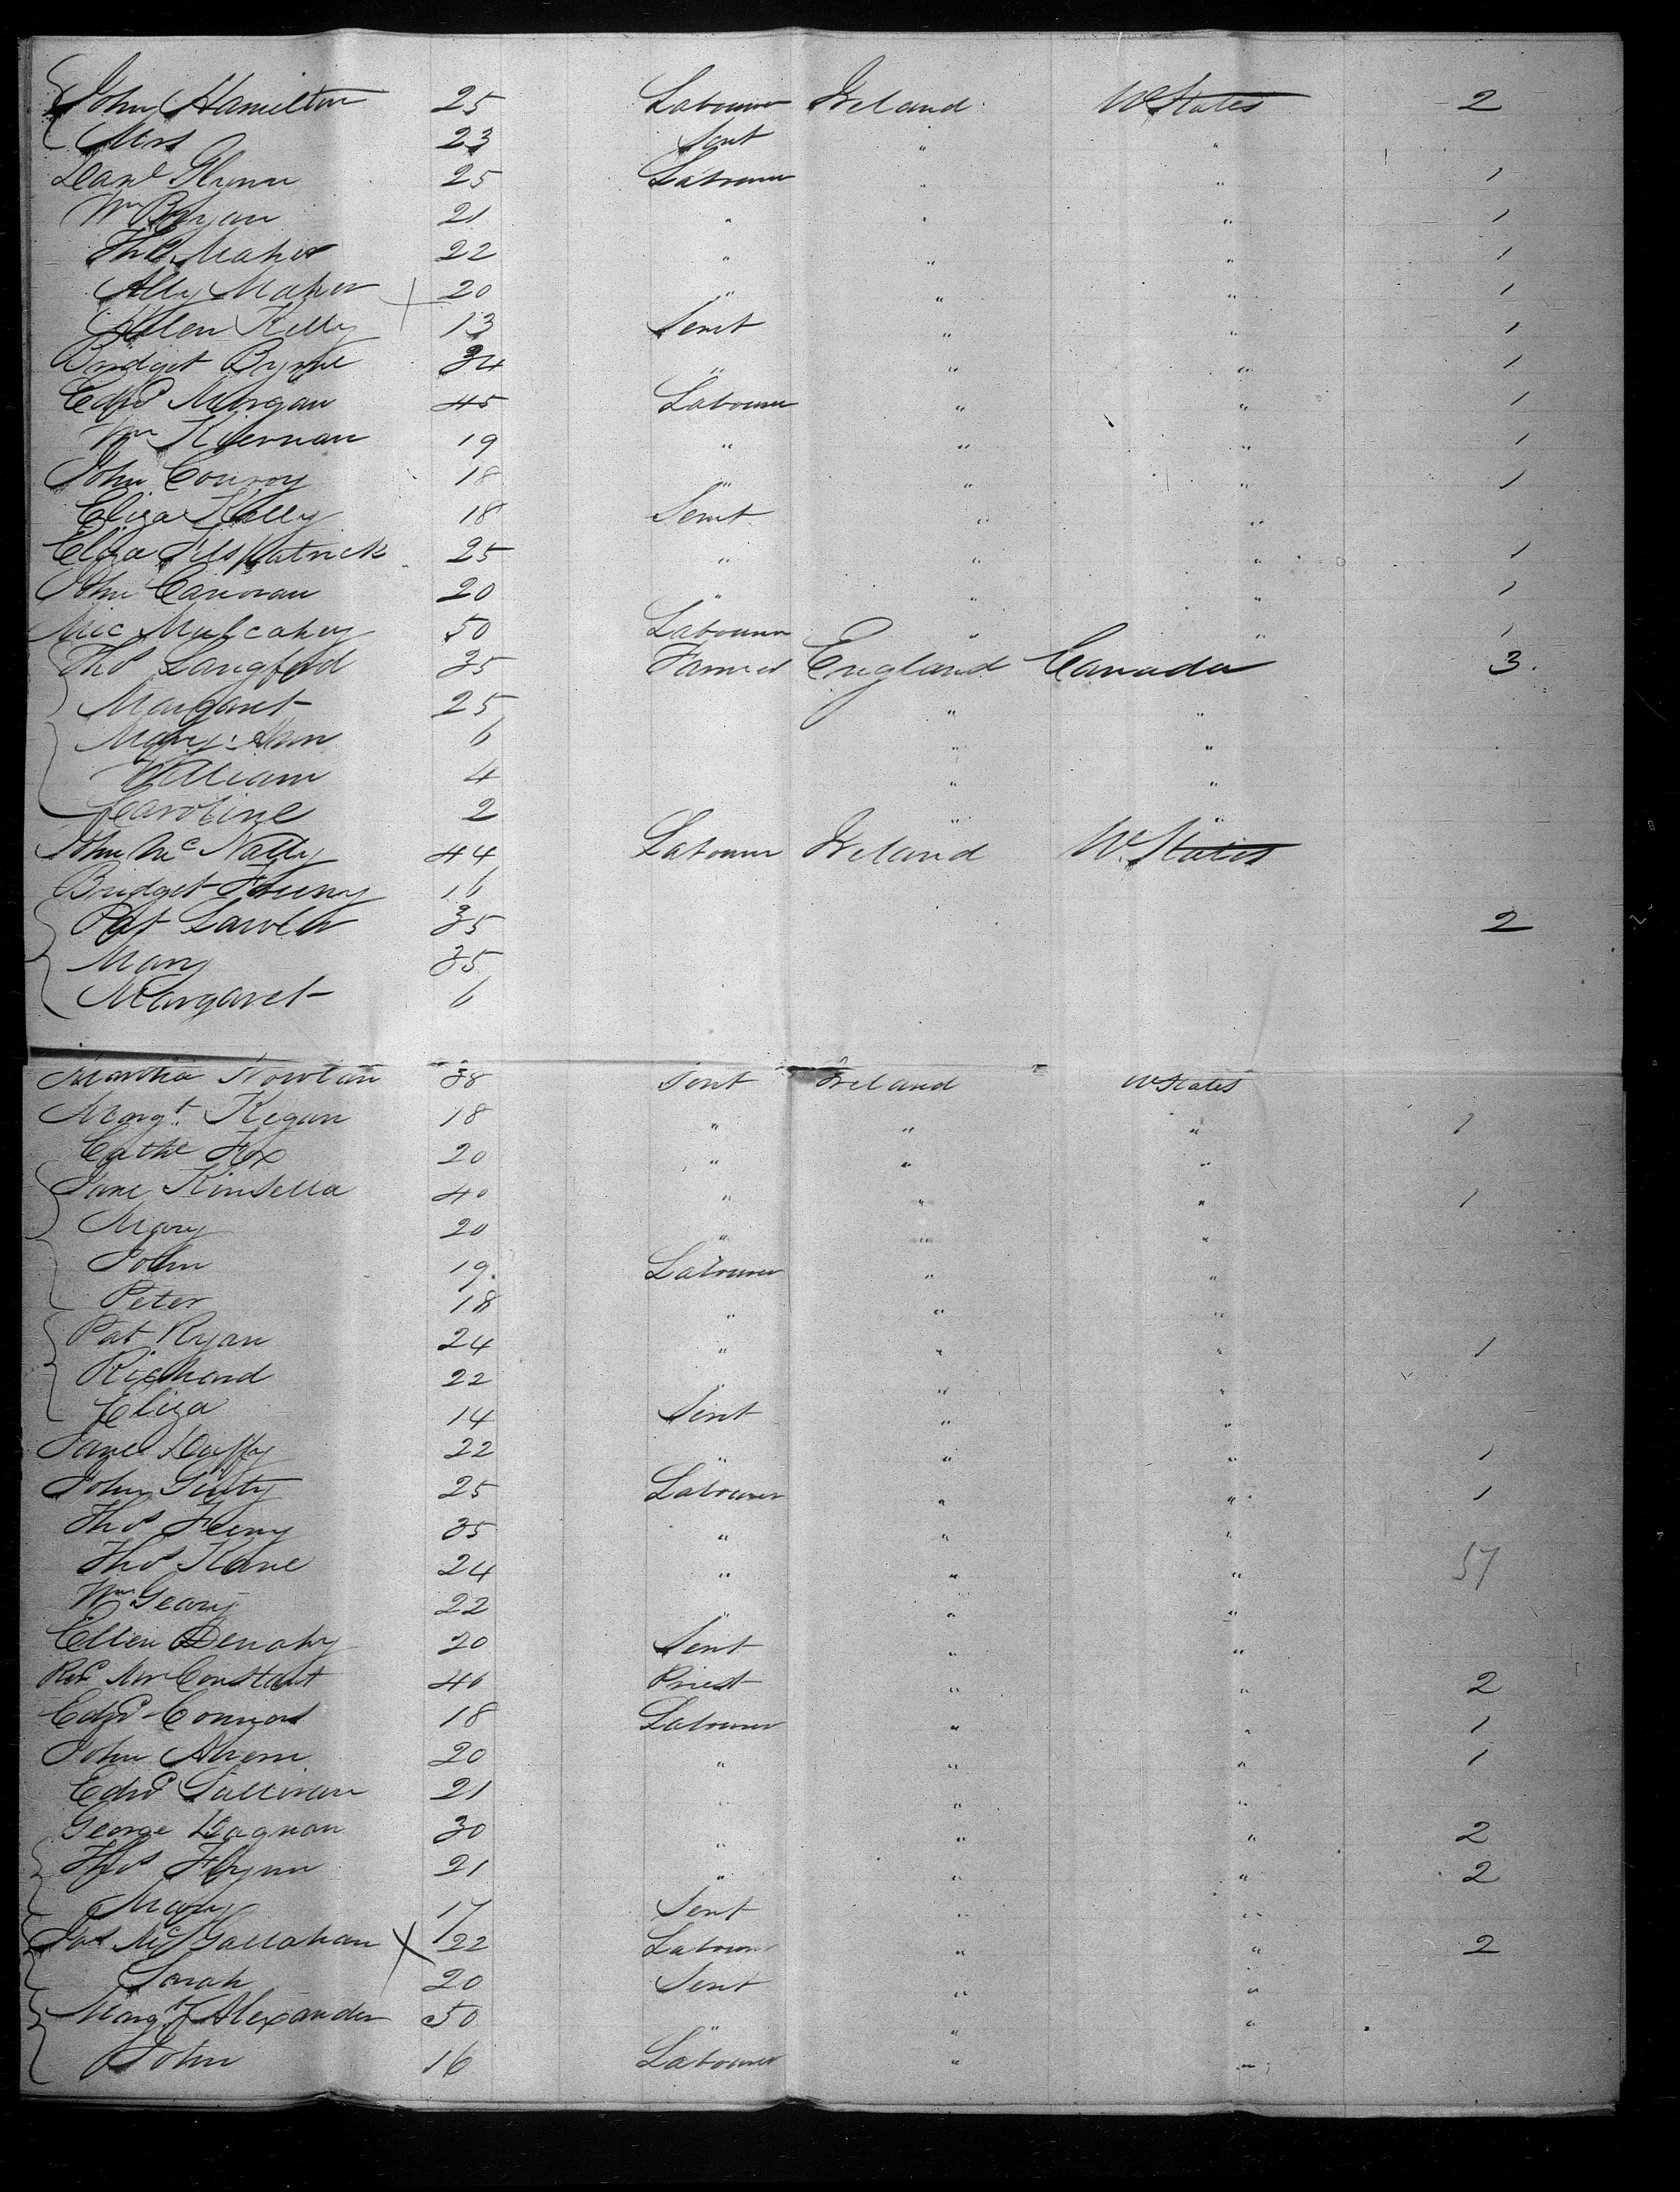 John Hamilton 25 Labourer Ireland U States 2
Mrs 23 Servt " "
Danl Glynn 25 Labourer " " 1
Wm Bryan 21 " " " 1
Thos Maher 22 " " " 1
Ally Maher 20 " " " 1
Ellen Kelly 13 Servt " " 1
Bridget Byrne 34 " " " 1
Edwd Morgan 45 Labourer " " 1
Wm Kiernan 19 " " " 1
John Conroy 18 " " " 1
Eliza Kelly 18 Servt " "
Eliza Fitspatrick 25 " " " 1
John Canovan 20 " " " 1
Mic Mulcahey 50 Labourer " " 1
Thos Langford 35 Farmer England Canada 3.
Margaret 25 " "
Mary Ann 6 " "
William 4 " "
Caroline 2 " "
John McNally 44 Labourer Ireland U. States
Bridget 16
Pat Lawler 35 2
Mary 35
Margaret 6
Martha Nowlan 38 Servt Ireland U States
Margt. Kegan 18 " " " 1
Cathe Fox 20 " " "
Jane Kinsella 40 " " " 1
Mary 20 " " "
John 19. Labourer " "
Peter 18 " " "
Pat Ryan 24 " " " 1
Richard 22 " " "
Eliza 14 Servt " "
Jane Duffy 22 " " " 1
John Ginty 25 Labourer " " 1
Thos Feeny 35 " " "
Thos Kane 24 " " " 57
Wm Geary 22 " " "
Ellen Denahy 20 Servt " "
Revd Mr Constant 40 Priest " " 2
Edwd Connors 18 Labourer " " 1
John Ahern 20 " " " 1
Edwd Sullivan 21 " " "
George Bagnan 30 " " " 2
Thos Flynn 21 " " " 2
Mary 17 Servt " "
McGallahan X 22 Labourer " " 2
Sarah 20 Servt " "
Margt Alexander 50 " " "
John 16 Labourer " "